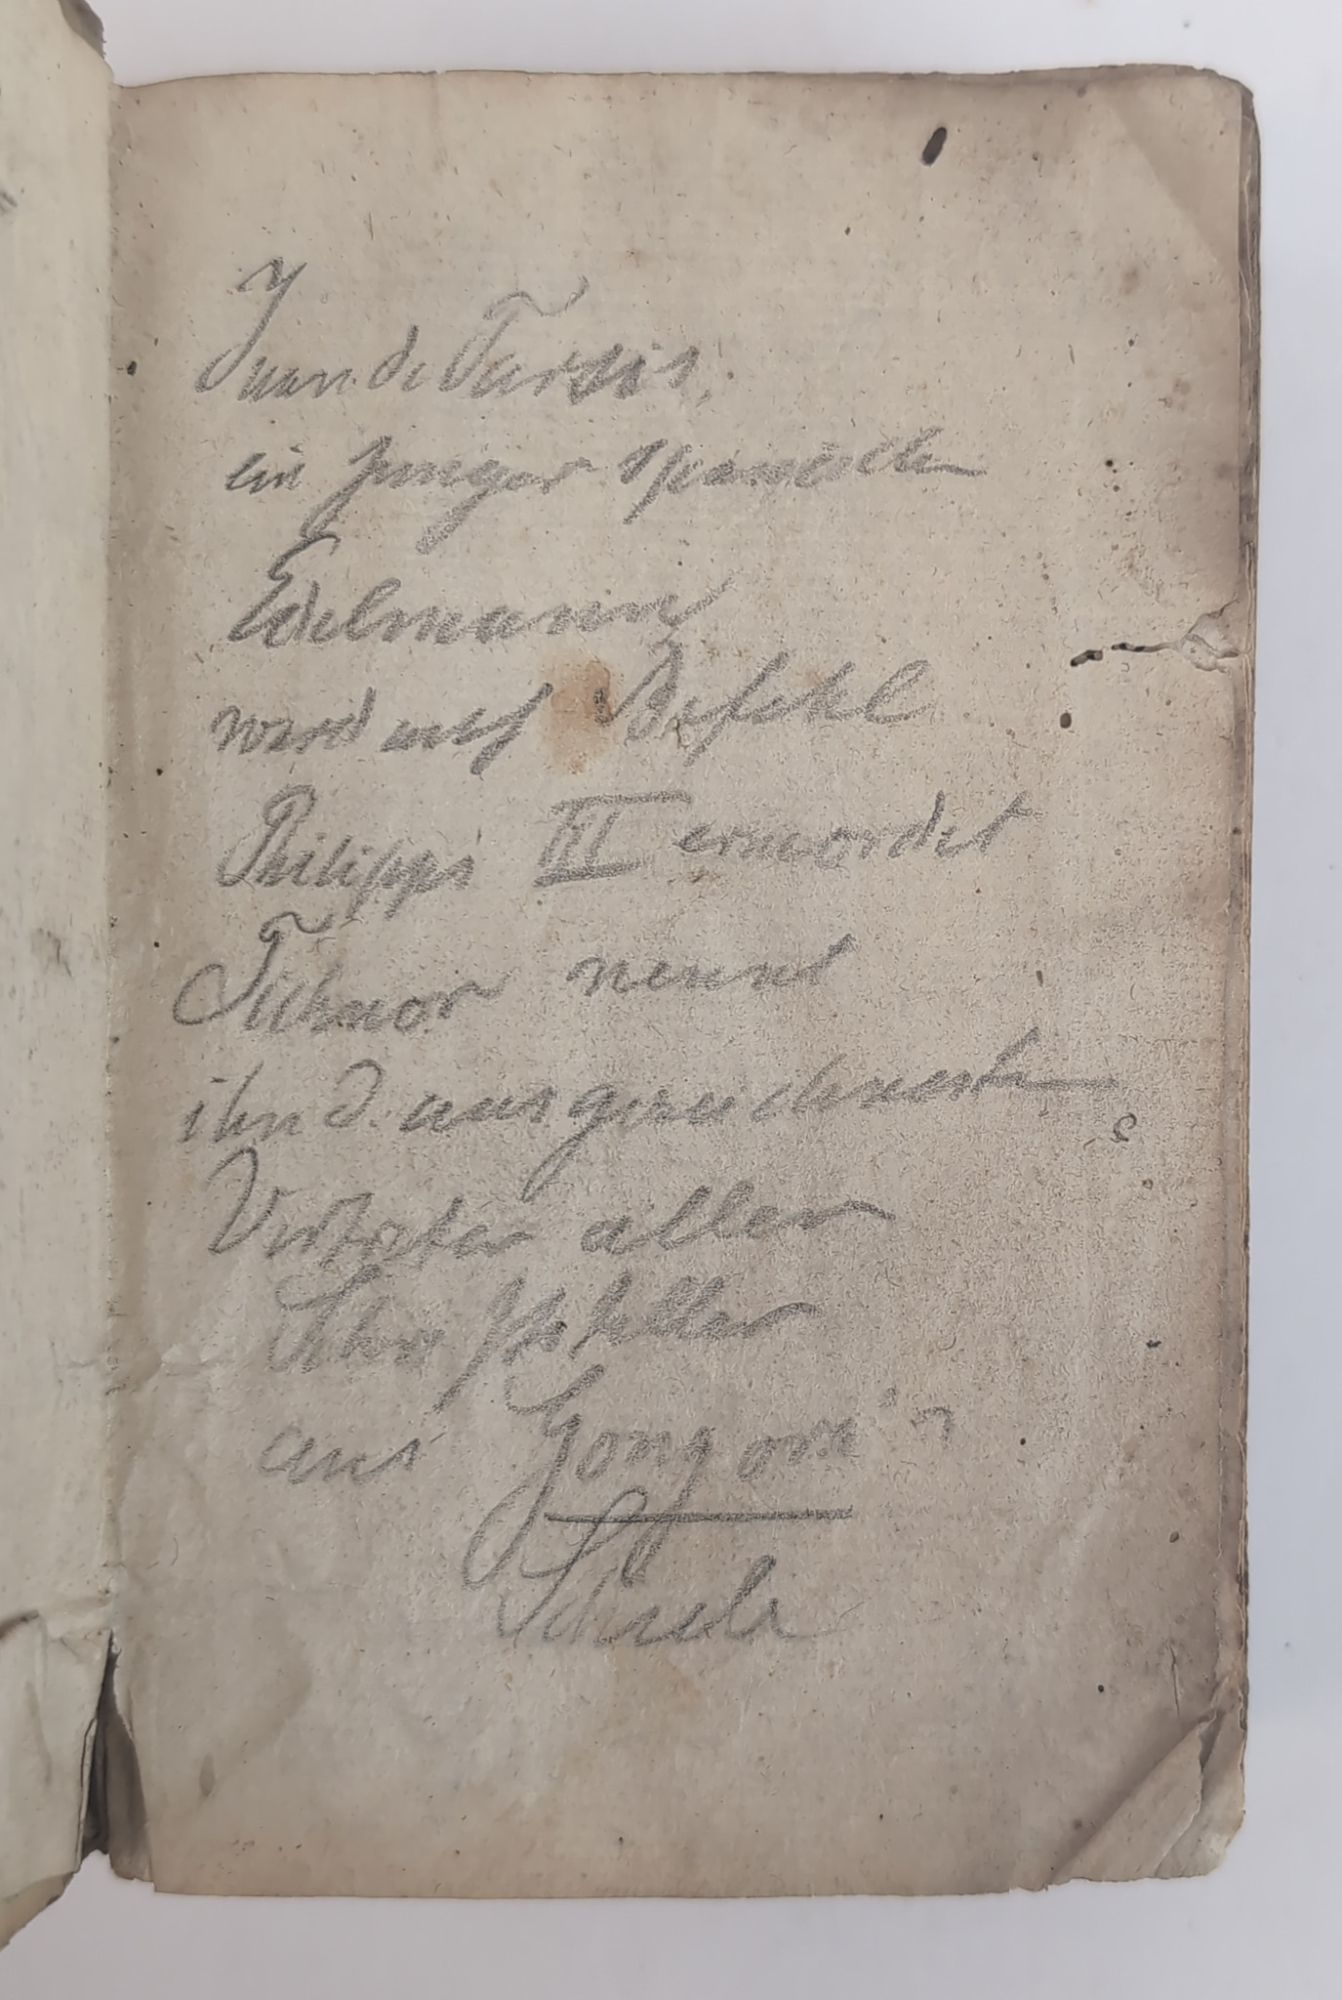 Juan de Tarsis,
ein junger spanischer
Edelmann
ward auf Befehl
Philipps III ermordet
Ticknor nennt
ihn d. ausgezeichnetste
Vertreter aller
Schriftsteller
aus Gongora's
Schule